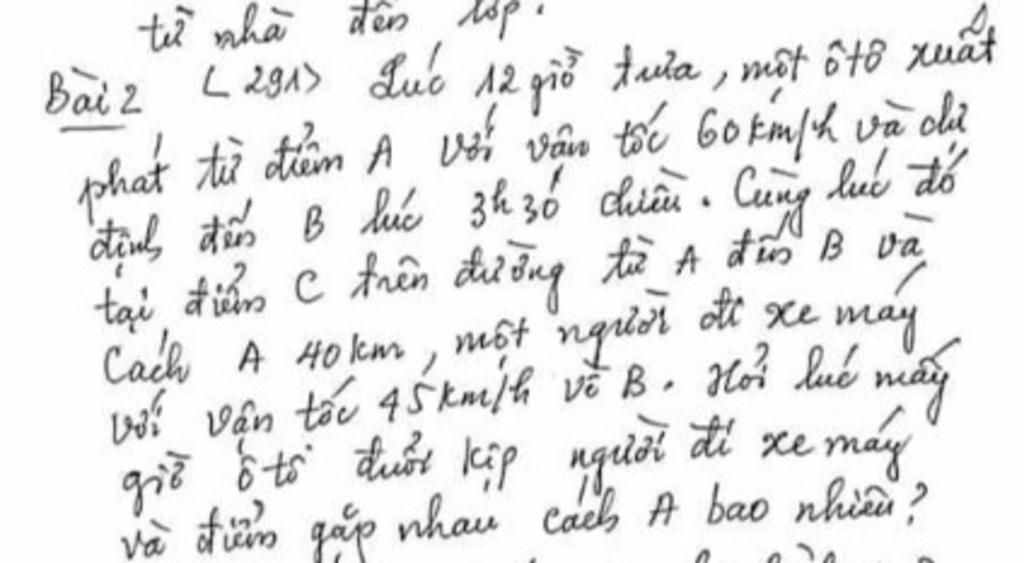 từ nhà đến lớp.
Bài 2 (291) Lúc 12 giờ trưa, một ôtô xuất
phát từ điểm A với vân tốc 60km/h và dự
định đến B lúc 3h30 chiều. Cùng lúc đó
tại điểm C trên đường từ A đến B và
cách A 40km, một người đi xe máy
với vận tốc 45km/h về B. Hỏi lúc mấy
giờ ô tô đuổi kịp người đi xe máy
và điểm gặp nhau cách A bao nhiêu?